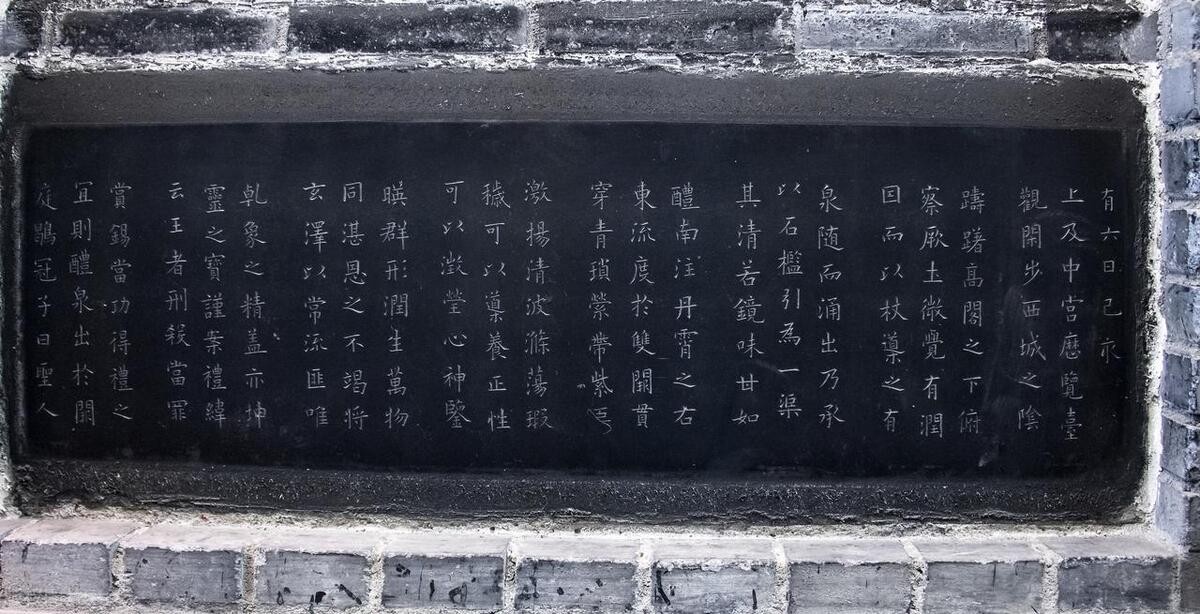 有六日己亥
上及中宮歷覽臺
觀閑步西城之陰
躊躇高閣之下俯
察厥土微覺有潤
因而以杖導之有
泉随而涌出乃承
以石檻引為一渠
其清若鏡味甘如
醴南注丹霄之右
東流度於雙闕貫
穿青瑣縈帶紫
激揚清波滌蕩瑕
穢可以導養正性
可以澂瑩心神鑒
暎群形潤生萬物
同湛恩之不竭将
玄澤以常流匪唯
乹象之精盖亦坤
靈之寶謹案禮緯
云王者刑殺當罪
賞錫當功得禮之
宜則醴泉出於闕
庭鶡冠子曰聖人